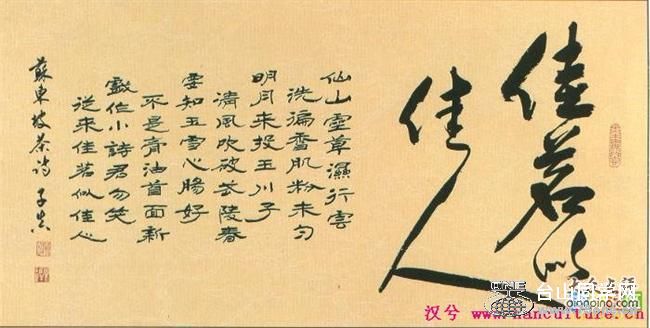 佳茗似
佳人
仙山靈草濕行雲
洗遍香肌粉未匀
明月来投玉川子
清風吹破武陵春
要知玉雪心腸好
不是膏油首面新
戲作小詩君勿笑
從来佳茗似佳人
蘇東坡茶詩 子
汉兮 www.hanculture.cn